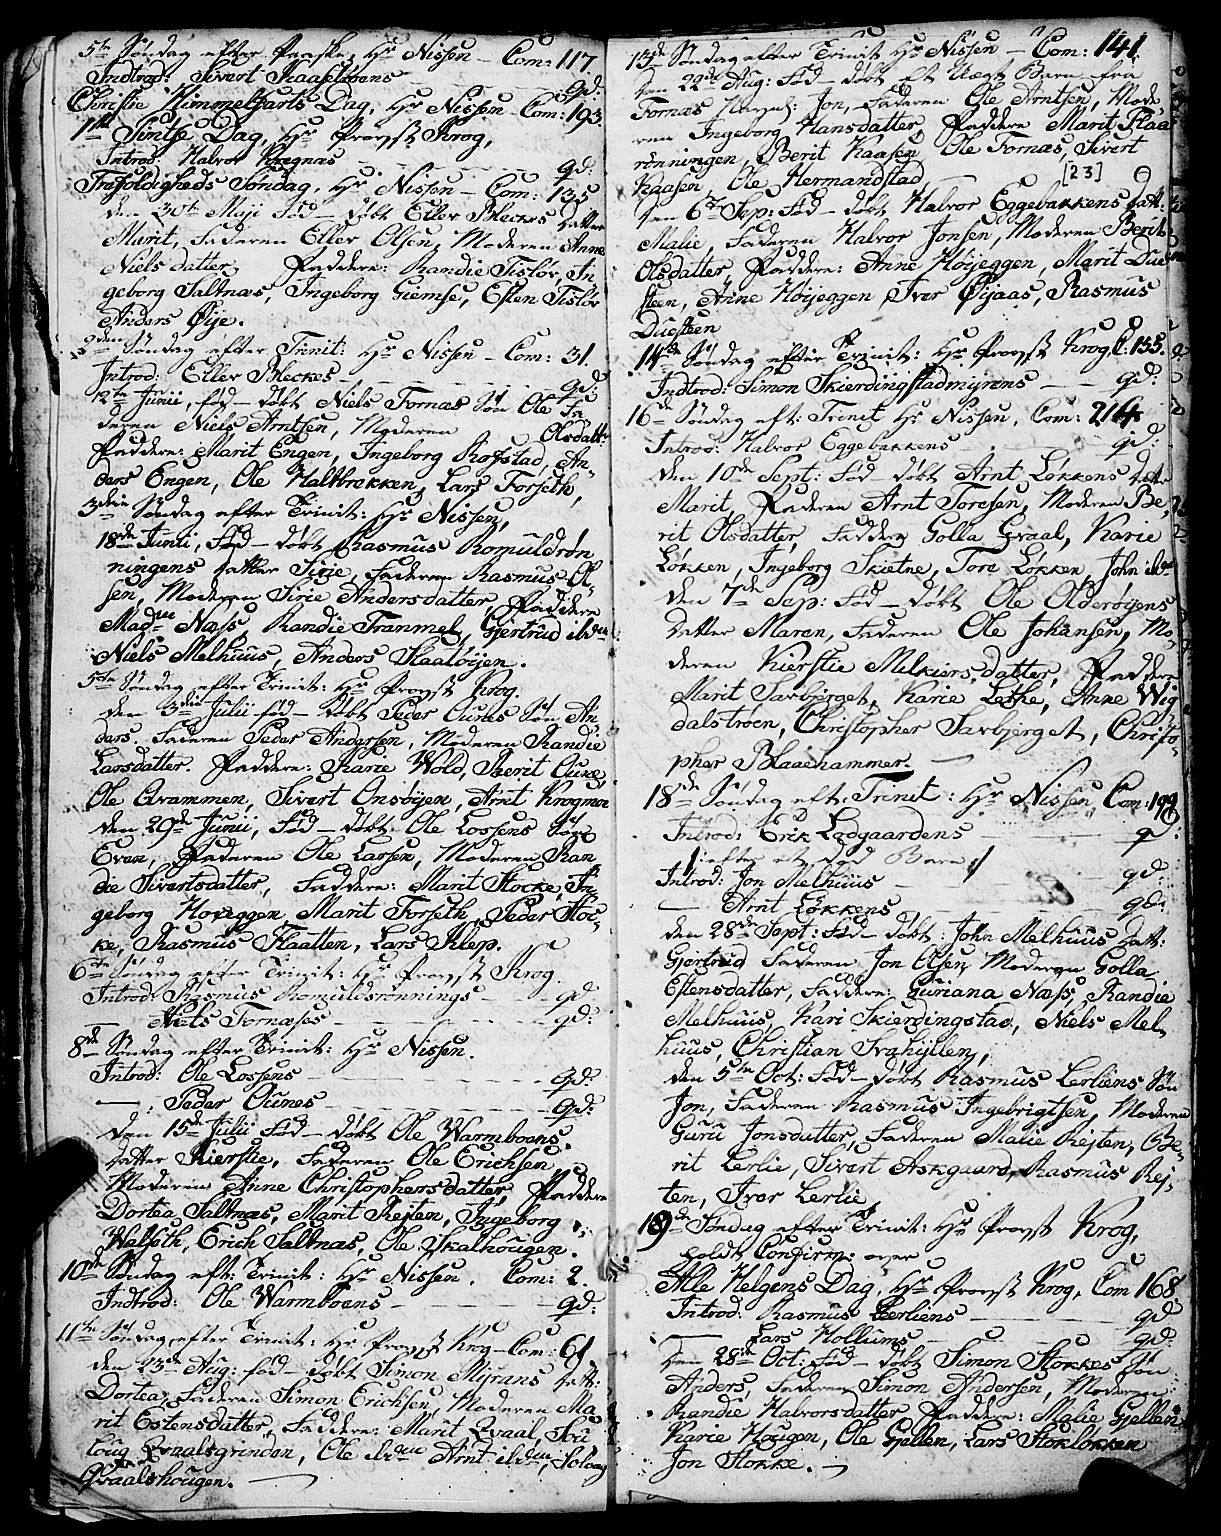 5te Søndag efter Paaske, Hr Nissen - Com: 117
Indtrod: Sivert Kaasløvens
Christie Himmelfarts Dag, Hr Nissen - Com: 193.
1ste Pintse Dag, Hr Provst Krog,
Introd: Halvor Kregnæs - - - qd:
Trefoldigheds Søndag, Hr Nissen - Com: 135
den 30te Maji fød - døbt Eller Bleckes datter
Marit, Faderen Eller Olsen, Moderen Anne
Niels datter, Faddere: Randie Tisløv, In
geborg Saltnæs, Ingeborg Giemse, Esten Tisløv
Anders Øije.
2den Søndag efter Trinit: Hr Nissen - Com: 31.
Introd: Eller Bleckes - - - qd:
12te Junii, fød - døbt Niels Fornæs Søn Ole Fa
deren Niels Arntsen, Moderen Olsdatt:
Faddere: Marit Engen, Ingeborg Rofstad, An
ders Engen, Ole Haltbrekken, Lars Forseth,
3die Søndag efter Trinit: Hr Nissen,
18de Junii, Fød - døbt Rasmus Romuldrøn
ningens datter Sirie, Faderen Rasmus Ol
sen, Moderen Sirie Andersdatter, Faddere
Madme Næss, Randie Tranmel, Gjertrud ibdm
Niels Melhuus, Anders Kaaløijen.
5te Søndag efter Trinit: Hr Provst Krog.
den 3die Julii fød - døbt Peder Ounes Søn An
ders. Faderen Peder Andersen, Moderen Randie
Larsdatter. Faddere: Karie Wold, Berit Oune,
Ole Qvammen, Sivert Onsøijen, Arnt Krogmoe
den 29de Junii, Fød - døbt Ole Lossens Søn
Even, Faderen Ole Larsen, Moderen Ran
die Sivertsdatter, Faddere: Marit Stocke, In
geborg Hoveggen, Marit Forseth, Peder Stoc
ke, Rasmus Flaatten, Lars Klep.
6te Søndag efter Trinit: Hr Provst Krog
Introd: Rasmus Romuldsrønnings - qd
- Niels Fornæses - - qd:
8de Søndag efter Trinit: Hr Nissen.
Introd: Ole Lossens - - - qd:
- : Peder Ounes - - - qd:
den 15de Julii Fød - døbt Ole Warmboens
datter Kierstie, Faderen Ole Erichsen
Moderen Anne Christophersdatter, Faddere
Dortea Saltnæs, Marit Rejten, Ingeborg
Walseth, Erich Saltnæs, Ole Skalhougen.
10de Søndag eft: Trinit: Hr Nissen. Com: 2.
Indtrod: Ole Warmboens - - - qd:
11te Søndag efter Trinit: Hr Provst Krog - Com: 61
den 23de Aug: fød - døbt Simon Myrans datt:
Dortea, Faderen Simon Erichsen, Moderen Ma
rit Estensdatter, Faddere: Marit Qvaal,
Qvaalsgrinden, Ole ibdm Arnt ibdm, Solvog
Qvaalshougen. -
13de Søndag efter Trinit Hr Nissen - Com: 141
den 22de Aug: Fød - døbt Et Uægt Barn fra
Fornæs Jon, Faderen Ole Arntsen, Mode
ren Ingeborg Hansdatter, Faddere Marit Flaa
rønningen, Berit Kaasen Ole Fornæs, Sivert
Kaasen, Ole Hermandstad [23]
den 6te Sep: Fød - døbt Halvor Eggebakkens datt:
Malie, Faderen Halvor Jonsen, Moderen Berit
Olsdatter, Faddere: Anne Høijeggen, Marit Due
steen, Anne Høijeggen, Iver Øijaas, Rasmus
Duesteen
14de Søndag efter Trinit: Hr Provst Krog, C: 135.
Indtrod: Simon Skierdingstadmyrens - - qd:
16de Søndag eft: Trinit Hr Nissen. Com: 214
Introd: Halvor Eggebakkens - - - qd:
den 10de Sept: Fød - døbt Arnt Løkkens datter
Marit, Faderen Arnt Toresen, Moderen Be,
rit Olsdatter, Faddere Golla Graal, Karie
Løkken, Ingeborg Skietne, Tore Løkken, John ibdm
den 7de Sep: Fød - døbt Ole Olderøijens
datter Maren, Faderen Ole Johansen, Mo,
deren Kierstie Melkiersdatter, Faddere
Marit Sarbjørget, Karie Lethe, Anne Wig
dalstroen, Christopher Sarbjerget, Christo,
pher Blaaehammer. -
18de Søndag eft: Trinit: Hr Nissen, Com: 199
Introd: Erik Ladgaardens - q:
/: efter et død Barn :/
Introd: Jon Melhuus - - qd:
- Arnt Løkkens - - qd:
den 28de Sept: Fød - døbt: John Melhuus datt:
Gjertrud Faderen Jon Olsen Moderen Golla
Estensdatter, Faddere: Guriana Næss, Randie
Melhuus, Kari Skierdingstad, Niels Mel,
huus, Christian Svahyllen,
den 5te Oct: Fød - døbt Rasmus Lerliens Søn
Jon, Faderen Rasmus Ingebrigtsen, Moderen
Guru Jonsdatter, Faddere Malie Rejten, Be,
rit Lerlie, Sivert Askgaard, Rasmus Rej,
ten, Iver Lerlie
19de Søndag efter Trinit: Hr Provst Krog,
holdt Confirm: over
Alle Helgens Dag, Hr Provst Krog, Com 168
Introd: Rasmus Lerliens - - qd
- Lars Hollums - - qd:
den 28de Oct: Fød - døbt Simon Stokkes Søn
Anders, Faderen Simon Andersen, Moderen
Randie Halvorsdatter Faddere: Malie Gjellen
Karie Hougen, Ole Gjellen, Lars Stokløkken
Jon Stokke. -